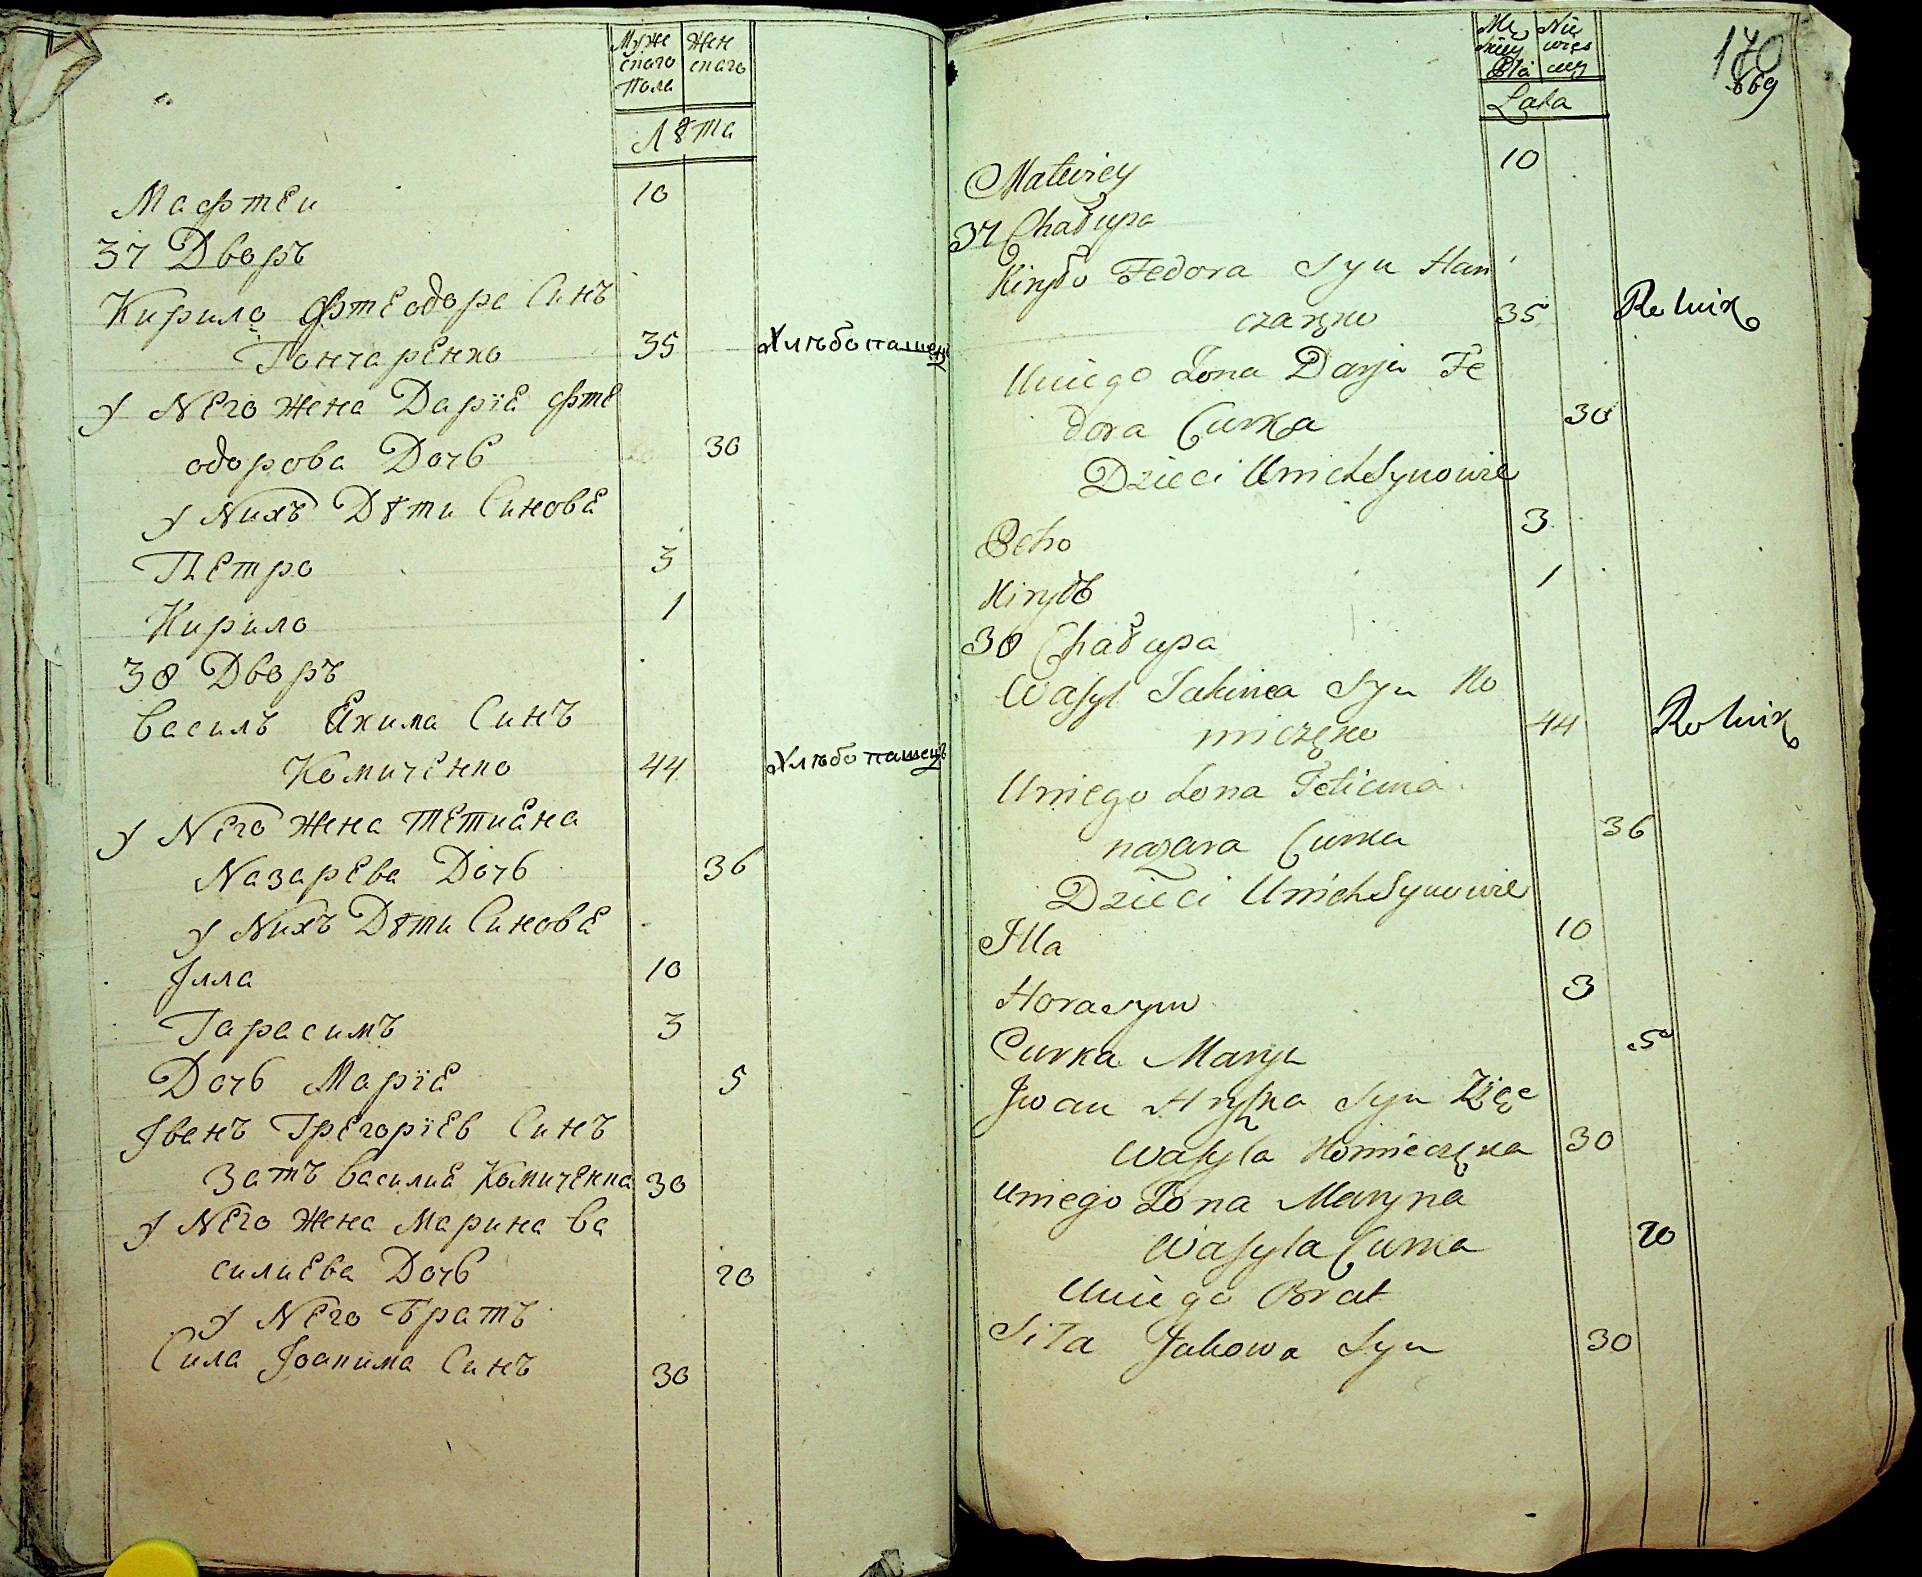 Муже Жен
скаго скаго
Пола
Лѣта
Мафтеи 10
37 Дворъ
Кирило Фтеодора Синъ
Гончаренко 35 Хлѣбопашец
У Него Жена Дарїе Фте
одорова Дочь 30
У Нихъ Дѣти Синове
Петро 3
Кирило 1
38 Дворъ
Василь Екима Синъ
Комиченко 44 Хлѣбопашецъ
У Него Жена Тетиена
Назарева Дочь 36
У Нихъ Дѣти Синове
Iлла 10
Гарасимъ 3
Дочь Марїе 5
Iванъ Грегорїев Синъ
Затъ Василие Комиченка 30
У Него Жена Марина Ва
силиева Дочь 20
У Него Братъ
Сила Iоакима Синъ 30
170
669
Lata
Matwiey 10
37 Chałupa
Kiryło Fedora Syn Han
czaręko 35 Rolnik
Uniego Żona Darja Fe
dora Curka 30
Dzieci Unich Synowie
Petro 3
Kiryło 1
38 Chałupa
Wasyl Jakima Syn Ko
miczęko 44 Rolnik
Uniego Żona Teticina
nazara Curka 36
Dzieci Unich Synowie
Illa 10
Horasym 3
Curka Marja 5
Jwan Hryska Syn Zięc
Wasyla Komieczęka 30
Uniego Żona Maryna
Wasyla Curka 20
Uniego Brat
Siła Jakowa Syn 30